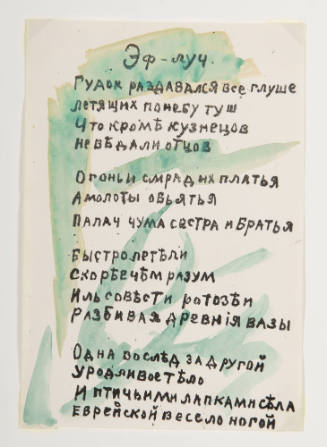 Эф-луч.
Гудок раздавался все глуше
летящих понебу туш
Что кромѣ кузнецов
невѣдали отцов
Огоньи смрад их платья
Амолоты обьятья
Палач чума сестра и братья
Быстролетѣли
Скорѣечѣм разум
Ильсовѣсти ротозѣи
Разбивая древнія вазы
Одна вослѣд за другой
уродливоетѣло
И птичьими лапкамисѣла
Еврейской весело ногой